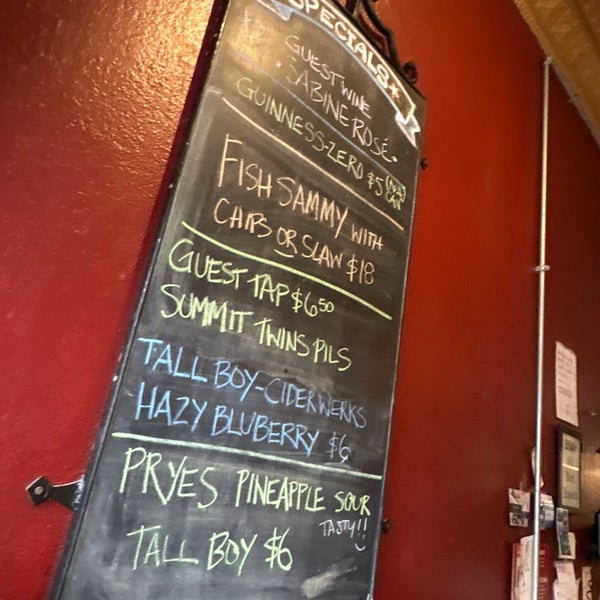 SPECIALS
GUEST WINE
SABINE ROSÉ
GUINNESS-ZERO $5 (N/A CAN)
FISH SAMMY WITH
CHIPS OR SLAW $18
GUEST TAP $6.50
SUMMIT TWINS PILS
TALL BOY-CIDERWERKS
HAZY BLUBERRY $6
PRYES PINEAPPLE SOUR
TASTY!!
TALL BOY $6